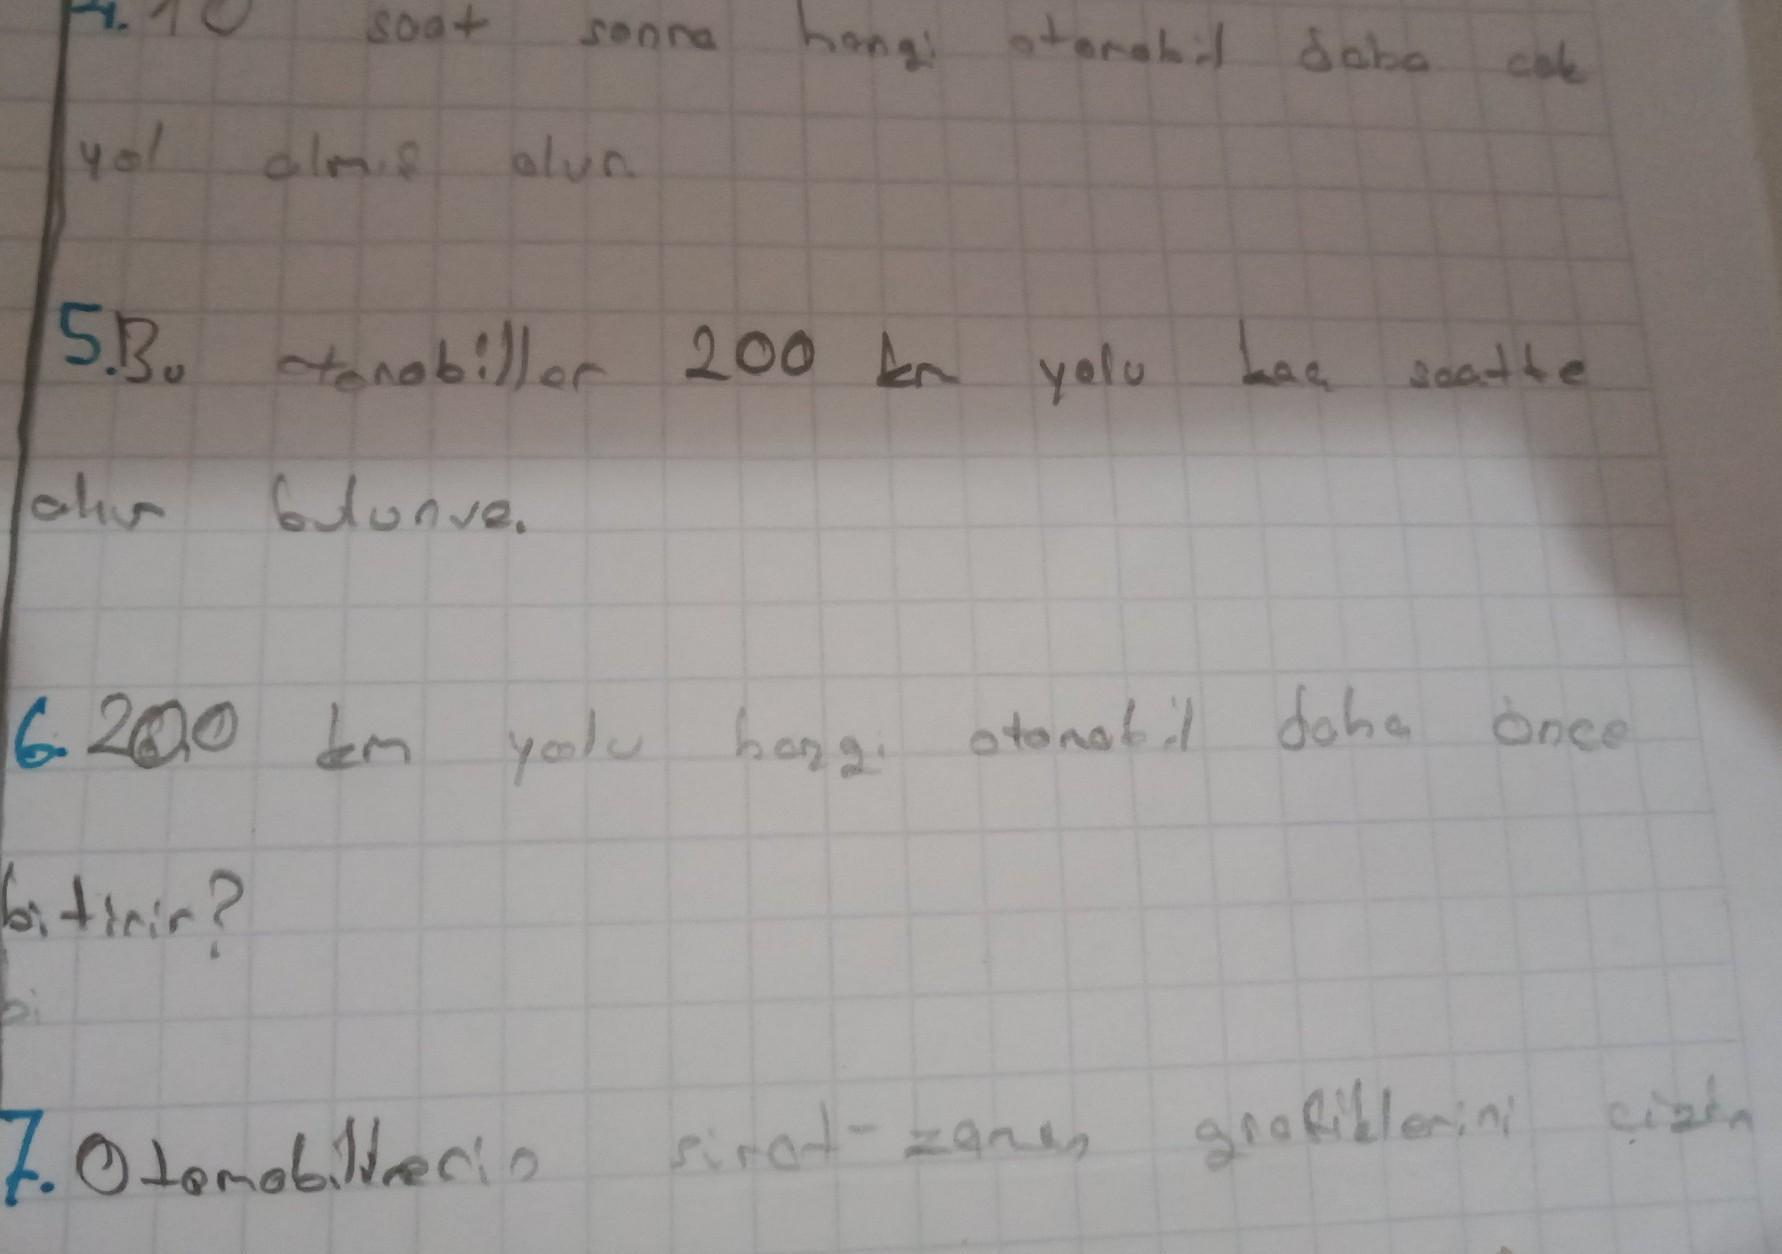 4. 10 soat sonra hangi otomobil daha cok
yol almış olur
5. Bu otomobiller 200 km yolu kaç saatte
alır bulunve.
6. 200 km yolu hangi otomobil daha önce
bitirir?
bi
7. Otomobillrecin sirat-zaman grafiklerini çizin